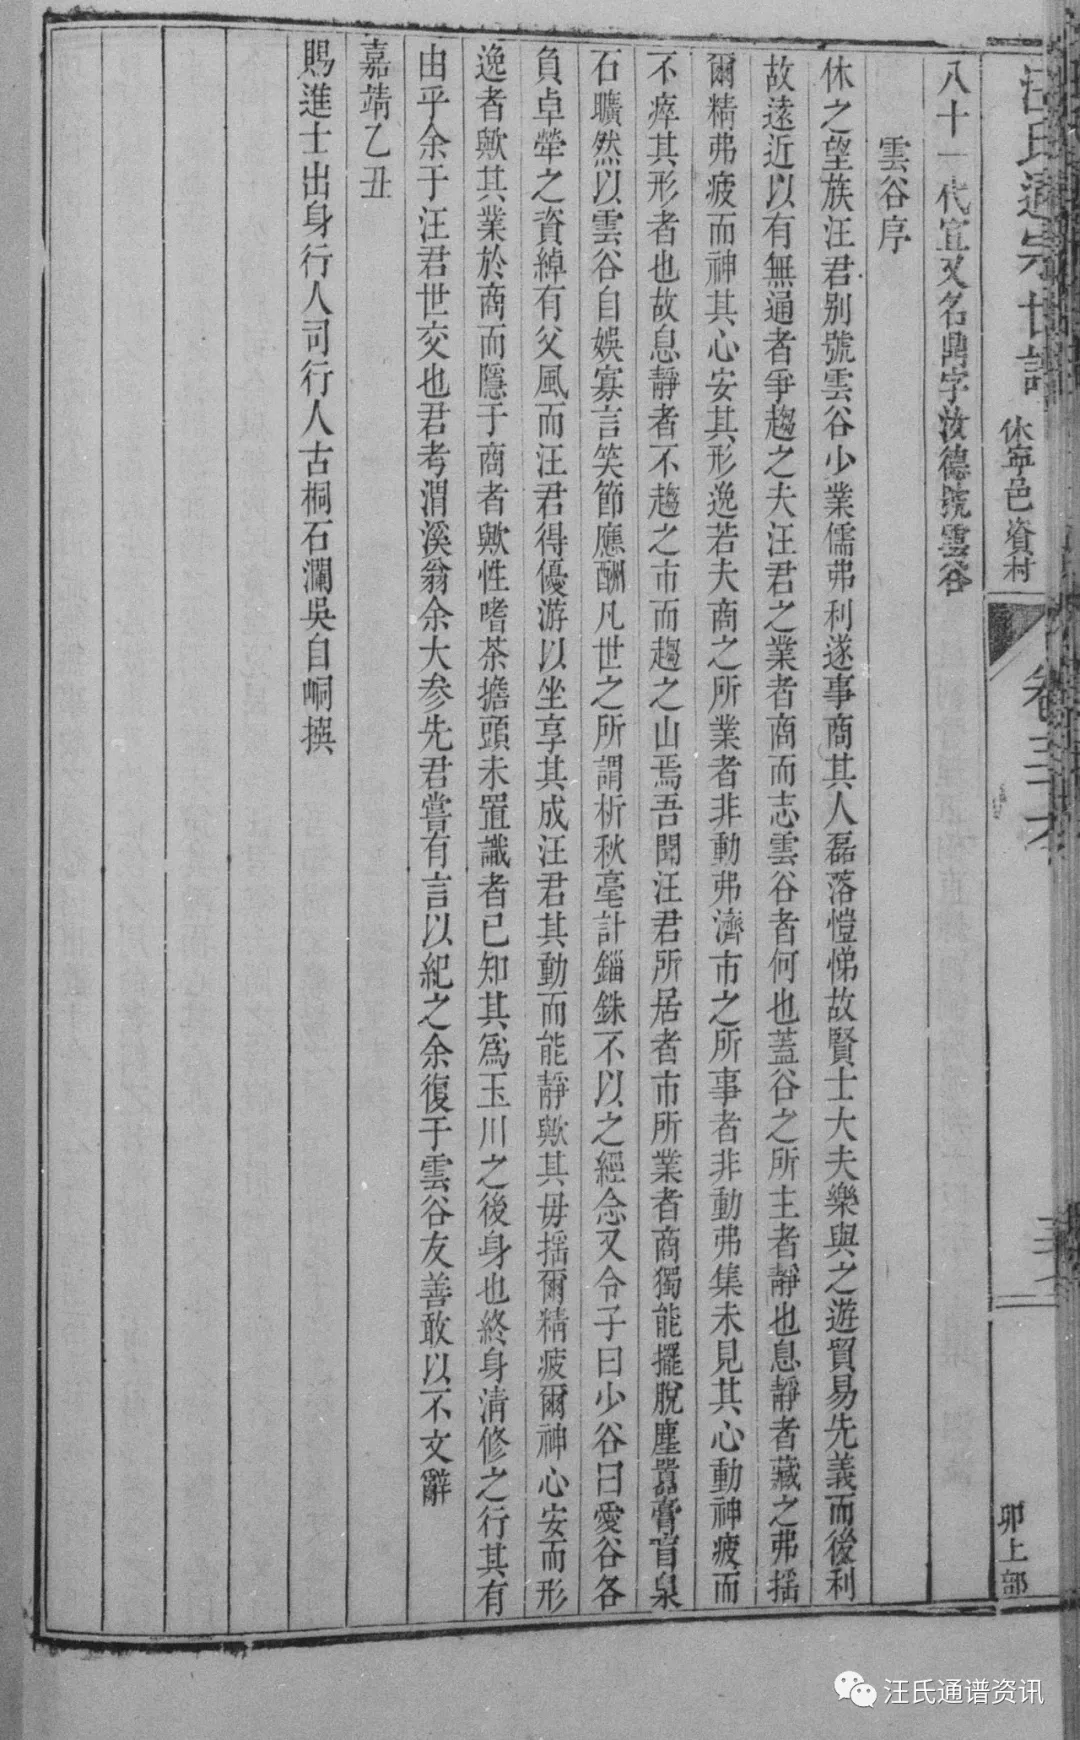 汪氏通宗世譜
休寧邑資村
卷
卯上部
八十一代宣又名鼎字汝德號雲谷
雲谷序
休之望族汪君别號雲谷少業儒弗利遂事商其人磊落愷悌故賢士大夫樂與之遊貿易先義而後利
故遠近以有無通者爭趨之夫汪君之業者商而志雲谷者何也蓋谷之所主者靜也息靜者藏之弗摇
爾精弗疲而神其心安其形逸若夫商之所業者非動弗濟市之所事者非動弗集未見其心動神疲而
不瘁其形者也故息靜者不趨之市而趨之山焉吾聞汪君所居者市所業者商獨能擺脫塵囂膏肓泉
石曠然以雲谷自娛寡言笑節應酬凡世之所謂析秋毫計錙銖不以之經念又令子曰少谷曰愛谷各
負卓犖之資綽有父風而汪君得優游以坐享其成汪君其動而能靜歟其毋摇爾精疲爾神心安而形
逸者歟其業於商而隱于商者歟性嗜茶擔頭未置識者已知其爲玉川之後身也終身清修之行其有
由乎余于汪君世交也君考渭溪翁余大参先君嘗有言以紀之余復于雲谷友善敢以不文辭
嘉靖乙丑
賜進士出身行人司行人古桐石瀾吳自峒撰
汪氏通谱资讯